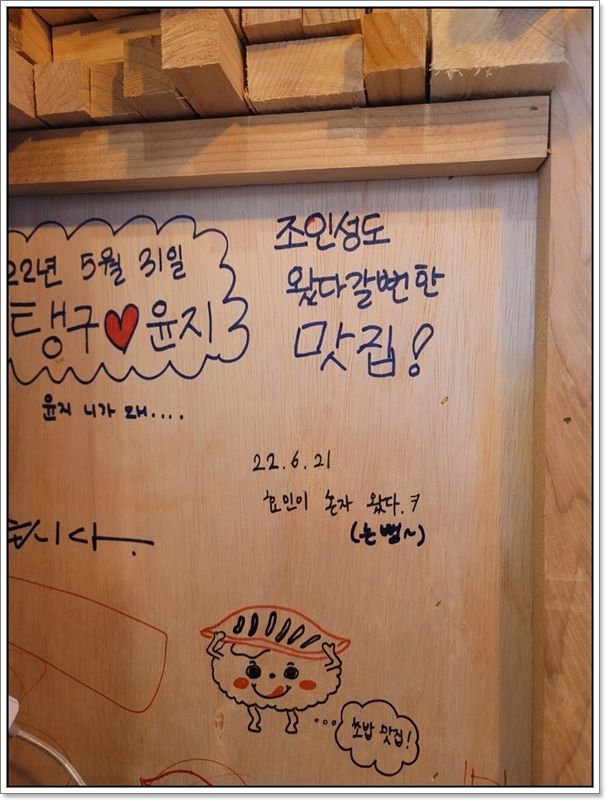 22년 5월 31일
탱구♥윤지
윤지 니가 왜....
조인성도
왔다갈뻔한
맛집!
22.6.21
효민이 혼자 왔다.ㅋ
(는뻥~)
초밥 맛집!